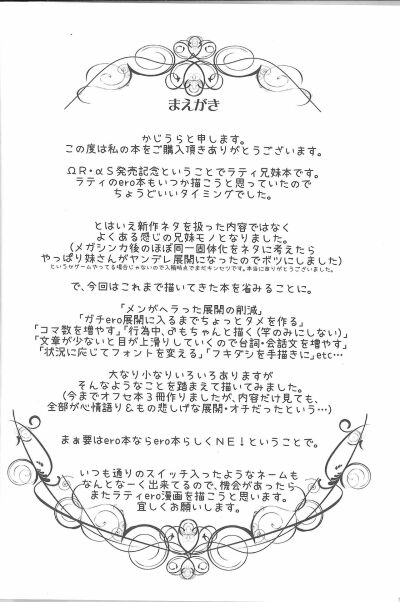 まえがき
かじうらと申します。
この度は私の本をご購入頂きありがとうございます。
ΩR・αS発売記念ということでラティ兄妹本です。
ラティのero本もいつか描こうと思っていたので
ちょうどいいタイミングでした。
とはいえ新作ネタを扱った内容ではなく
よくある感じの兄妹モノとなりました。
(メガシンカ後のほぼ同一固体化をネタに考えたら
やっぱり妹さんがヤンデレ展開になったのでボツにしました)
というかゲームやってる場合じゃないので入稿時点でまだキンセツです。本当にありがとうございました。
で、今回はこれまで描いてきた本を省みることに。
「メンがヘラった展開の削減」
「ガチero展開に入るまでちょっとタメを作る」
「コマ数を増やす」「行為中、♂もちゃんと描く(竿のみにしない)」
「文章が少ないと目が上滑りしていくので台詞・会話文を増やす」
「状況に応じてフォントを変える」「フキダシを手描きに」etc…
大なり小なりいろいろありますが
そんなようなことを踏まえて描いてみました。
(今までオフセ本3冊作りましたが、内容だけ見ても、
全部が心情語り&もの悲しげな展開・オチだったという…)
まぁ要はero本ならero本らしくNE!ということで。
いつも通りのスイッチ入ったようなネームも
なんとなーく出来てるので、機会があったら
またラティero漫画を描こうと思います。
宜しくお願いします。